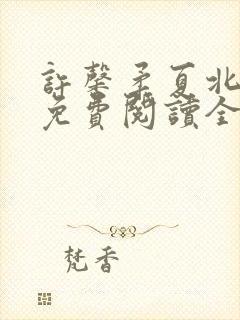 許馨矛夏北
免費閱讀全
梵香